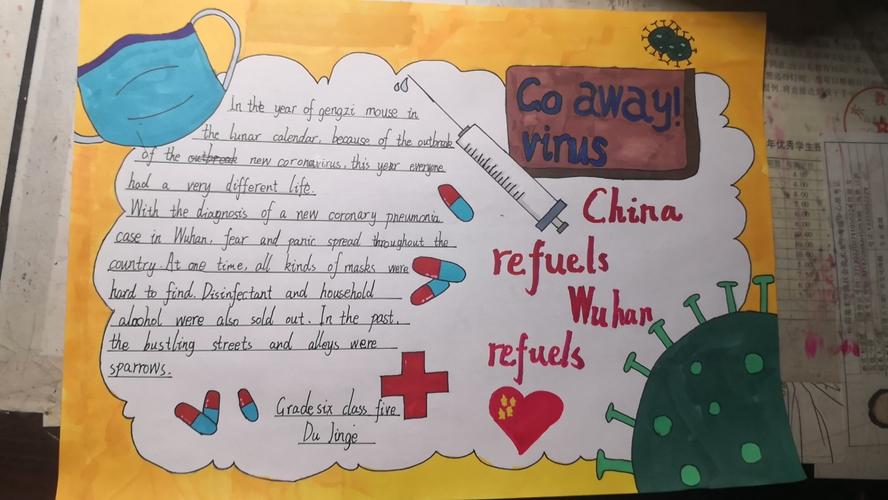 In the year of gengzi mouse in
the lunar calendar, because of the outbreak
of the outbreak new coronavirus, this year everyone
had a very different life.
With the diagnosis of a new coronary pneumonia
case in Wuhan, fear and panic spread throughout the
country. At one time, all kinds of masks were
hard to find. Disinfectant and household
alcohol were also sold out. In the past,
the bustling streets and alleys were
sparrows.
Grade six class five
Du Jinge
Go away!
virus
China
refuels
Wuhan
refuels
年优秀学生